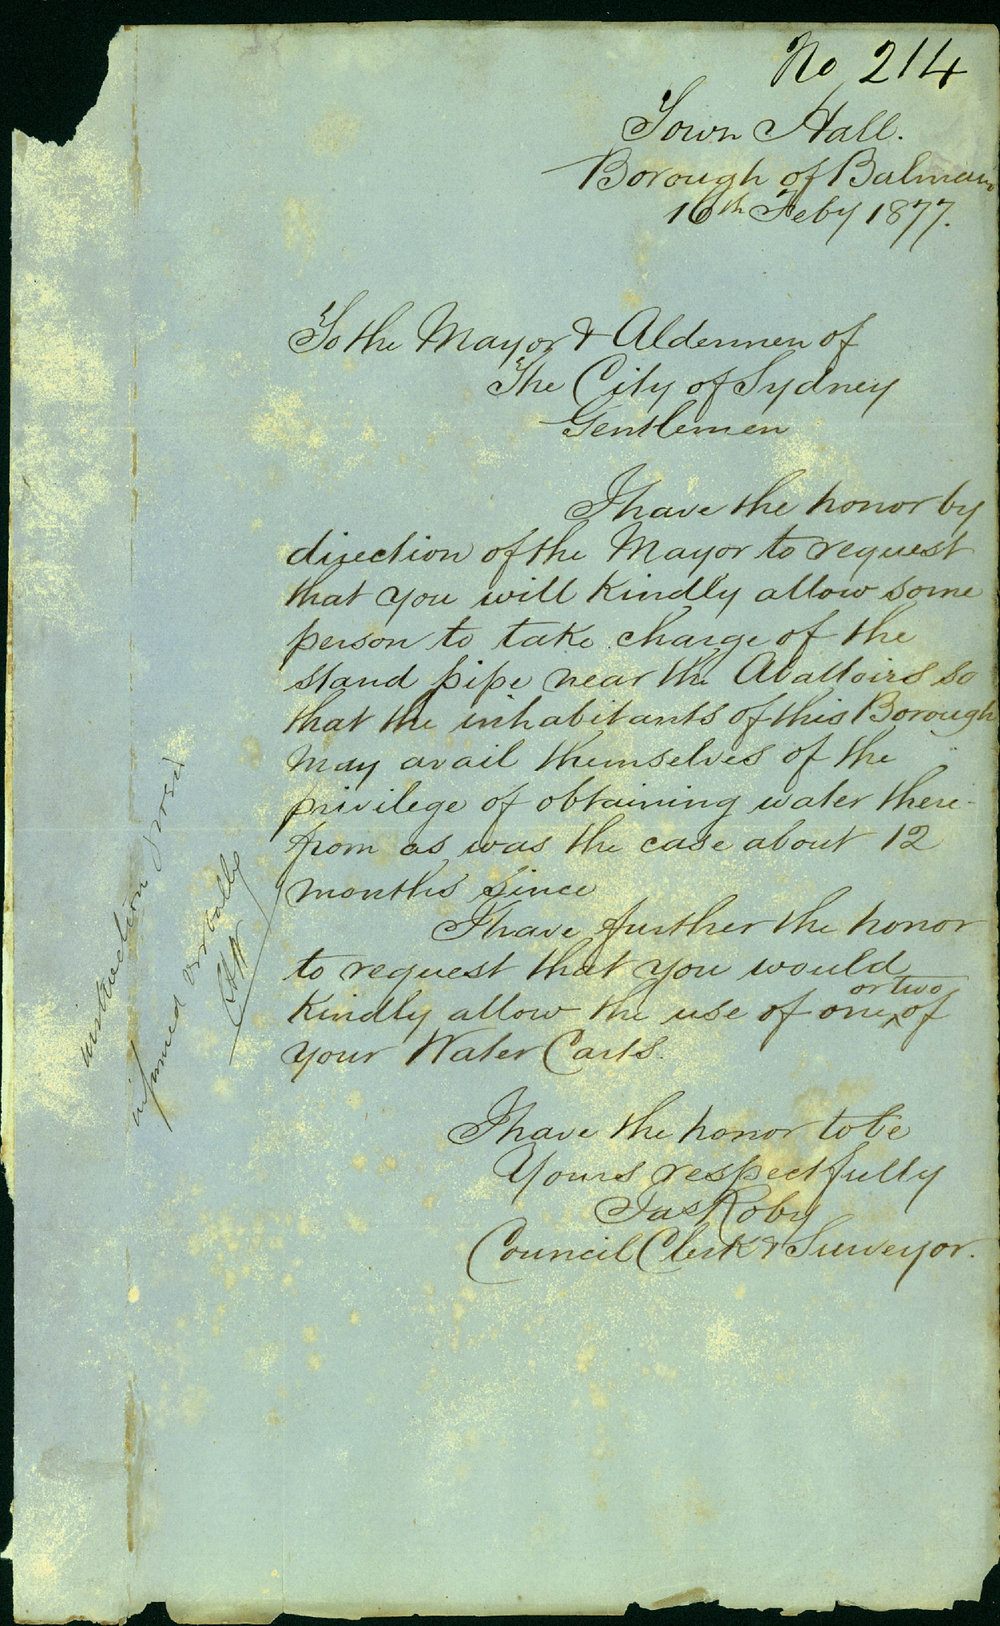 No 214
Town Hall.
Borough of Balmain
16th Feby 1877.
To the Mayor & Aldermen of
The City of Sydney
Gentlemen
I have the honor by
direction of the Mayor to request
that you will kindly allow some
person to take charge of the
stand pipe near the Abattoirs so
that the inhabitants of this Borough
may avail themselves of the
privilege of obtaining water there-
from as was the case about 12
months since
I have further the honor
to request that you would
kindly allow the use of one or two of
your Water Carts.
I have the honor to be
Yours respectfully
Jas Roby
Council Clerk & Surveyor.
instruction
informed verbally